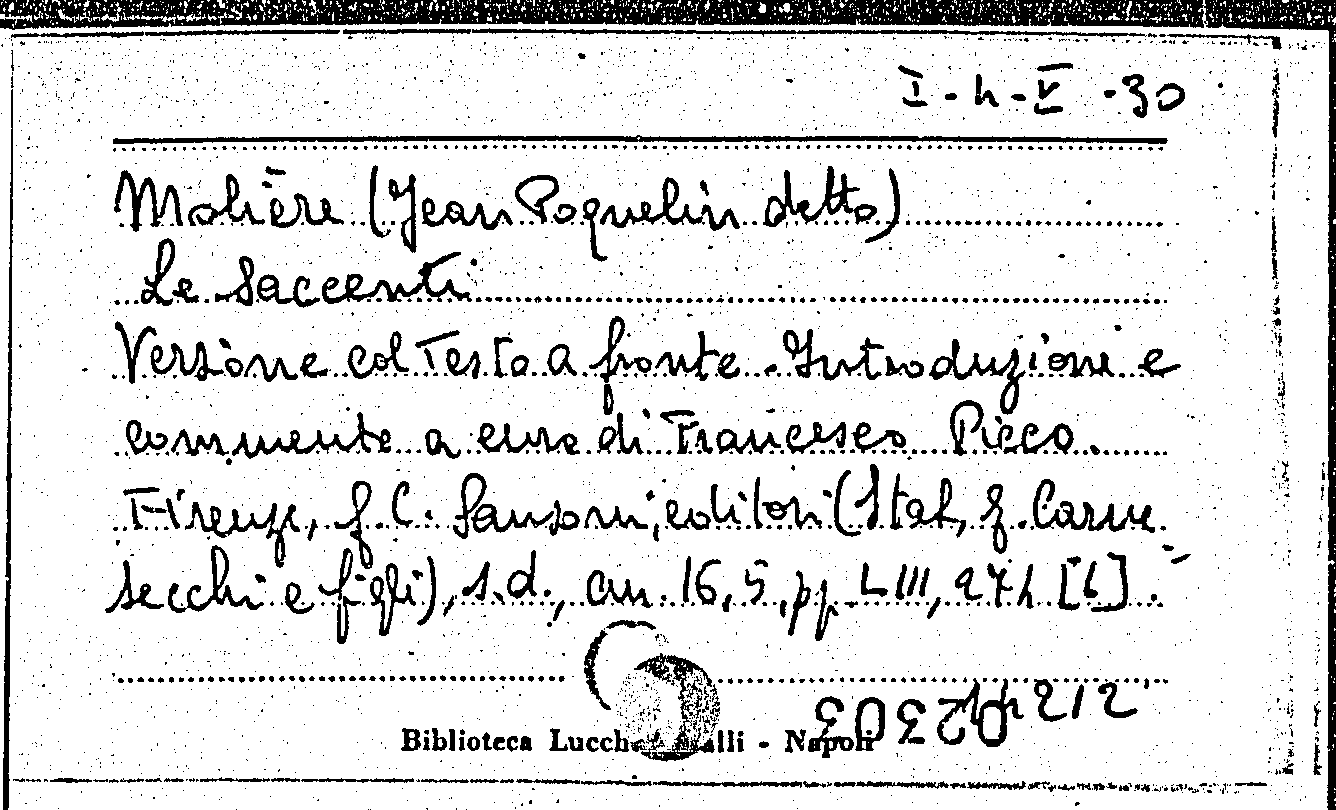 I-h-V-30
Molière (Jean Poquelin detto)
Le Saccenti
Versione col Testo a fronte. Introduzione e
commento a cura di Francesco Picco.
Firenze, G. C. Sansoni, editori (Stab. G. Carne-
secchi e figli), s.d., cm. 16,5, pp. LIII, 274 [6].
02303
Biblioteca Lucchesi Palli - Napoli